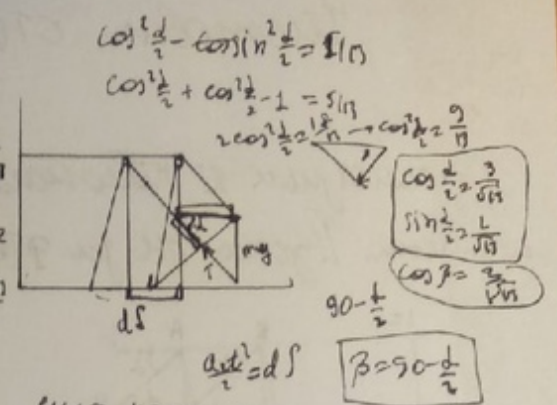 cos²α/2 - sin²α/2 = 5/13
cos²α/2 + cos²α/2 - 1 = 5/13
2cos²α/2 = 18/13 → cos²α/2 = 9/13
cos α/2 = 3/√13
sin α/2 = 2/√13
cos β = 2/√13
α
T
mg
dS
90 - α/2
at²/2 = dS
β = 90 - α/2